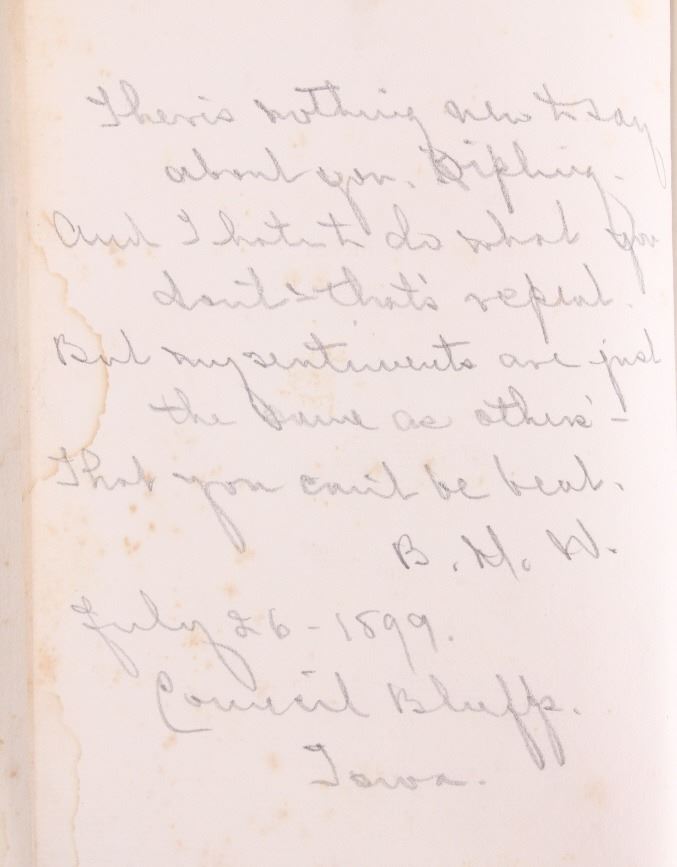 There's nothing new to say
about you, Kipling.
And I hate to do what you
don't - that's repeat.
But my sentiments are just
the same as others' -
That you can't be beat.
B. H. W.
July 26 - 1899.
Council Bluffs.
Iowa.